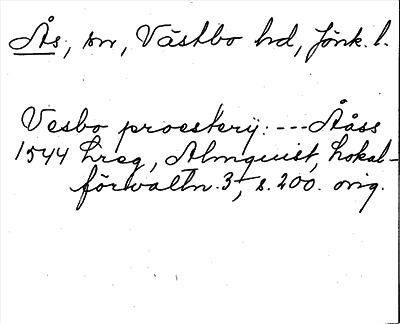 Ås, sn, Västbo hd, Jönk. l.
Vesbo proestery: --- Ååss
1544 Lreg, Almquist, Lokal-
förvaltn. 3, s. 200. orig.